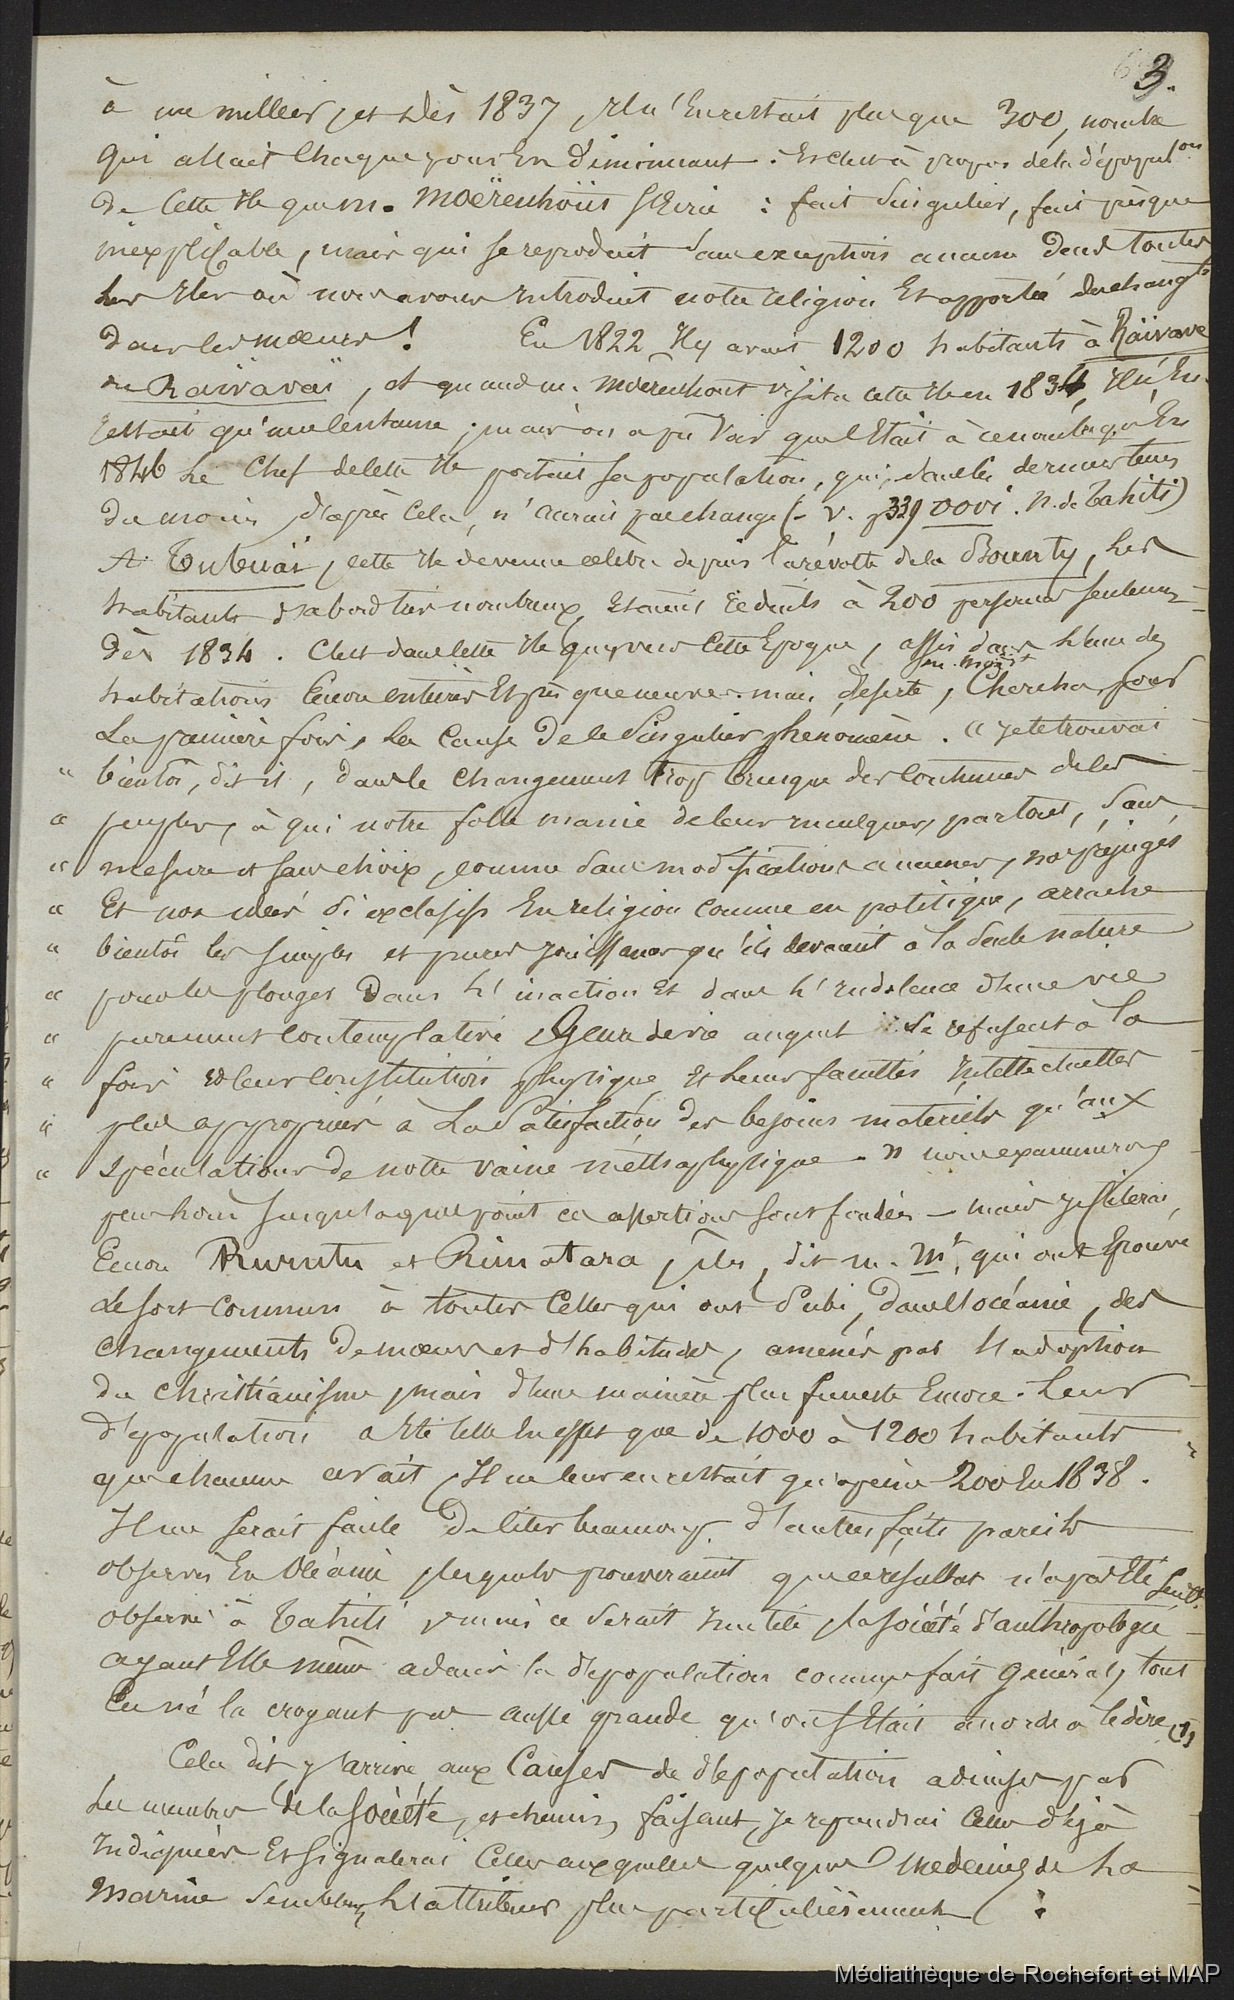 3.
à un millier, et dès 1837, il n'en restait plus que 300, nombre
qui allait chaque jour en diminuant. C'est à propos de la dépopul.on
de cette île que m. Moërenhoüs s'écria : fait singulier, fait presque
inexplicable, mais qui se reproduit sans exception aucune dans toutes
les îles où nous avons introduit notre religion et apporté du chang.t
dans les mœurs ! En 1822 il y avait 1200 habitants à Raïvave
ou Raivavaï, et quand m. Moerenhout visita cette île en 1834, il n'en
restait qu'une centaine ; mais on a pu voir que c'était à ce nombre qu'en
1846 le Chef de cette île portait sa population, qui, dans les derniers tems
du moins, d'après cela, n'aurait pas changé (- V. p 339 oovi. N. de Tahiti)
A Tubuaï, cette île devenue célèbre depuis la révolte de la Bounty, les
habitants d'abord très nombreux, étaient réduits à 200 personnes seulement
dès 1834. C'est dans cette île que, vers cette époque, assis dans l'une des
habitations encore entières et presque neuves mais désertes, m. Moër.t chercha pour
la première fois, la cause de ce singulier phénomène. « Je le trouvai
" bientôt, dit il, dans le changement trop brusque des coutumes de ces
" peuples, à qui notre folle manie de leur inculquer, partout, sans
" mesure et sans choix, comme sans modifications aucunes, nos préjugés
" et nos idées si exclusifs en religion comme en politique, arrache
" bientôt les simples et pures jouissances qu'ils devaient à la seule nature
" pour les plonger dans l'inaction et dans l'indolence d'une vie
" purement contemplative, genre de vie auquel se refusent à la
" fois et leur constitution physique et leurs facultés intellectuelles
" plus appropriées à la satisfaction des besoins matériels qu'aux
" spéculations de notre vaine méthaphysique. » nous examinerons
plus loin jusqu'à quel point ces assertions sont fondées - mais je citerai,
encore Rurutu et Rimatara, îles, dit m. M.t, qui ont éprouvé
le sort commun à toutes celles qui ont subi, dans l'océanie, des
changements de mœurs et d'habitudes, amenés par l'adoption
du Christianisme, mais d'une manière plus funeste encore. Leur
dépopulation a été telle en effet que de 1000 à 1200 habitants
que chacune avait, il ne leur en restait qu'à peine 200 en 1838.
Il me serait facile de citer beaucoup d'autres faits pareils
observés en Océanie, lesquels prouveraient que ce résultat n'a pas été seul.t
observé à Tahiti, mais ce serait inutile, la société d'anthropologie
ayant elle même admis la dépopulation comme fait général, tout
en ne la croyant pas aussi grande qu'on s'était accordé à le dire (1)
Cela dit, j'arrive aux causes de dépopulation admises par
les membres de la société, et chemin, faisant, je reprendrai celles déjà
indiquées et signalerai celles auxquelles quelques médecins de la
Marine semblent l'attribuer plus particulièrement :
Médiathèque de Rochefort et MAP